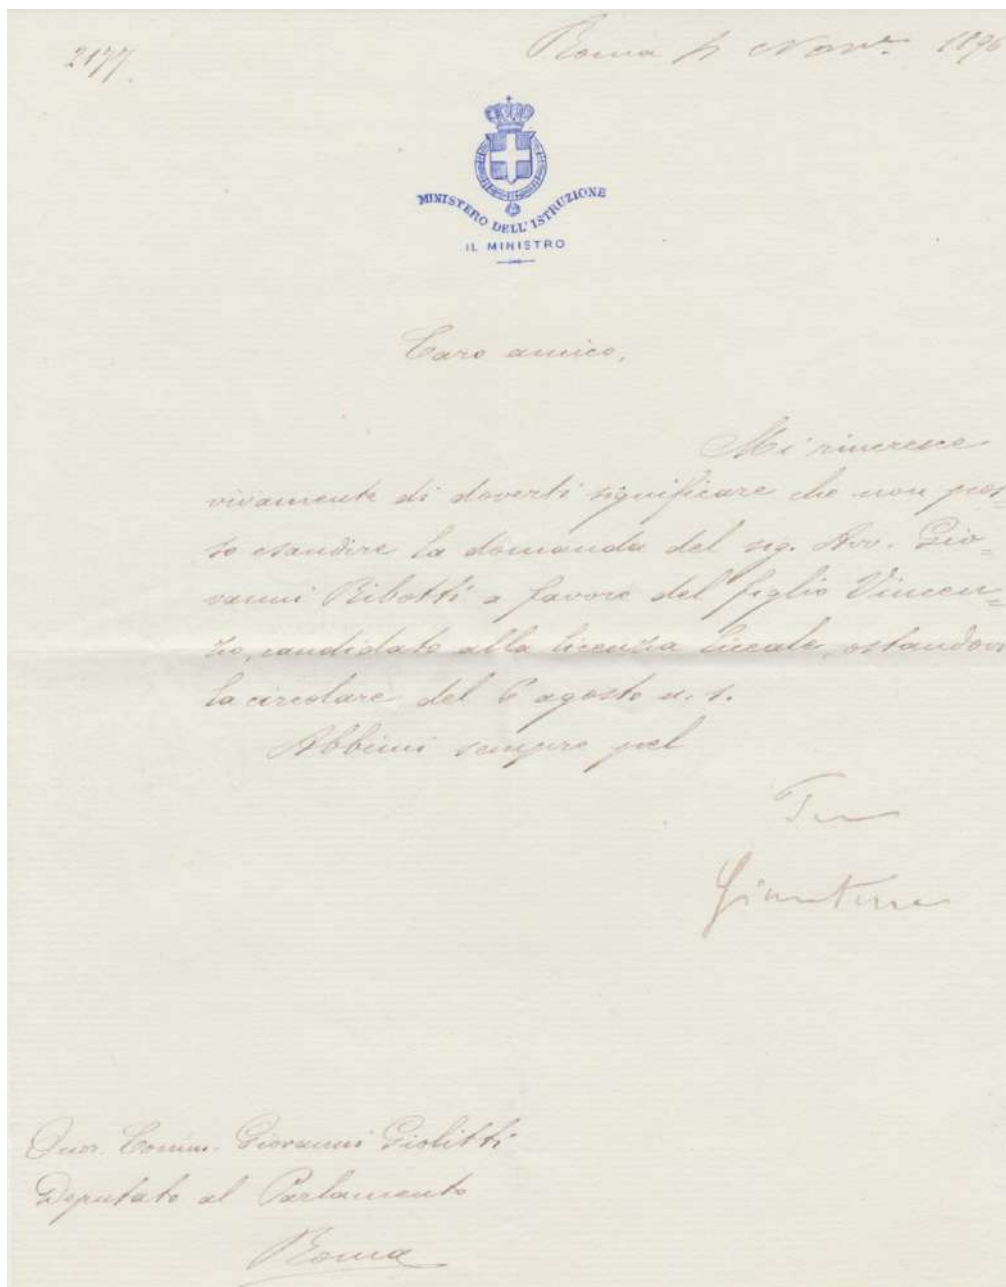 2177.
Roma 4 Nov.e 1896
MINISTERO DELL'ISTRUZIONE
IL MINISTRO
Caro amico,
Mi rincresce
vivamente di doverti significare che non pos
so esaudire la domanda del sig. Avv. Gio-
vanni Ribotti a favore del figlio Vincen-
zo, candidato alla licenza liceale, ostandovi
la circolare del 6 agosto u. s.
Abbimi sempre pel
Tuo
Gianturco
Onor. Comm. Giovanni Giolitti
Deputato al Parlamento
Roma